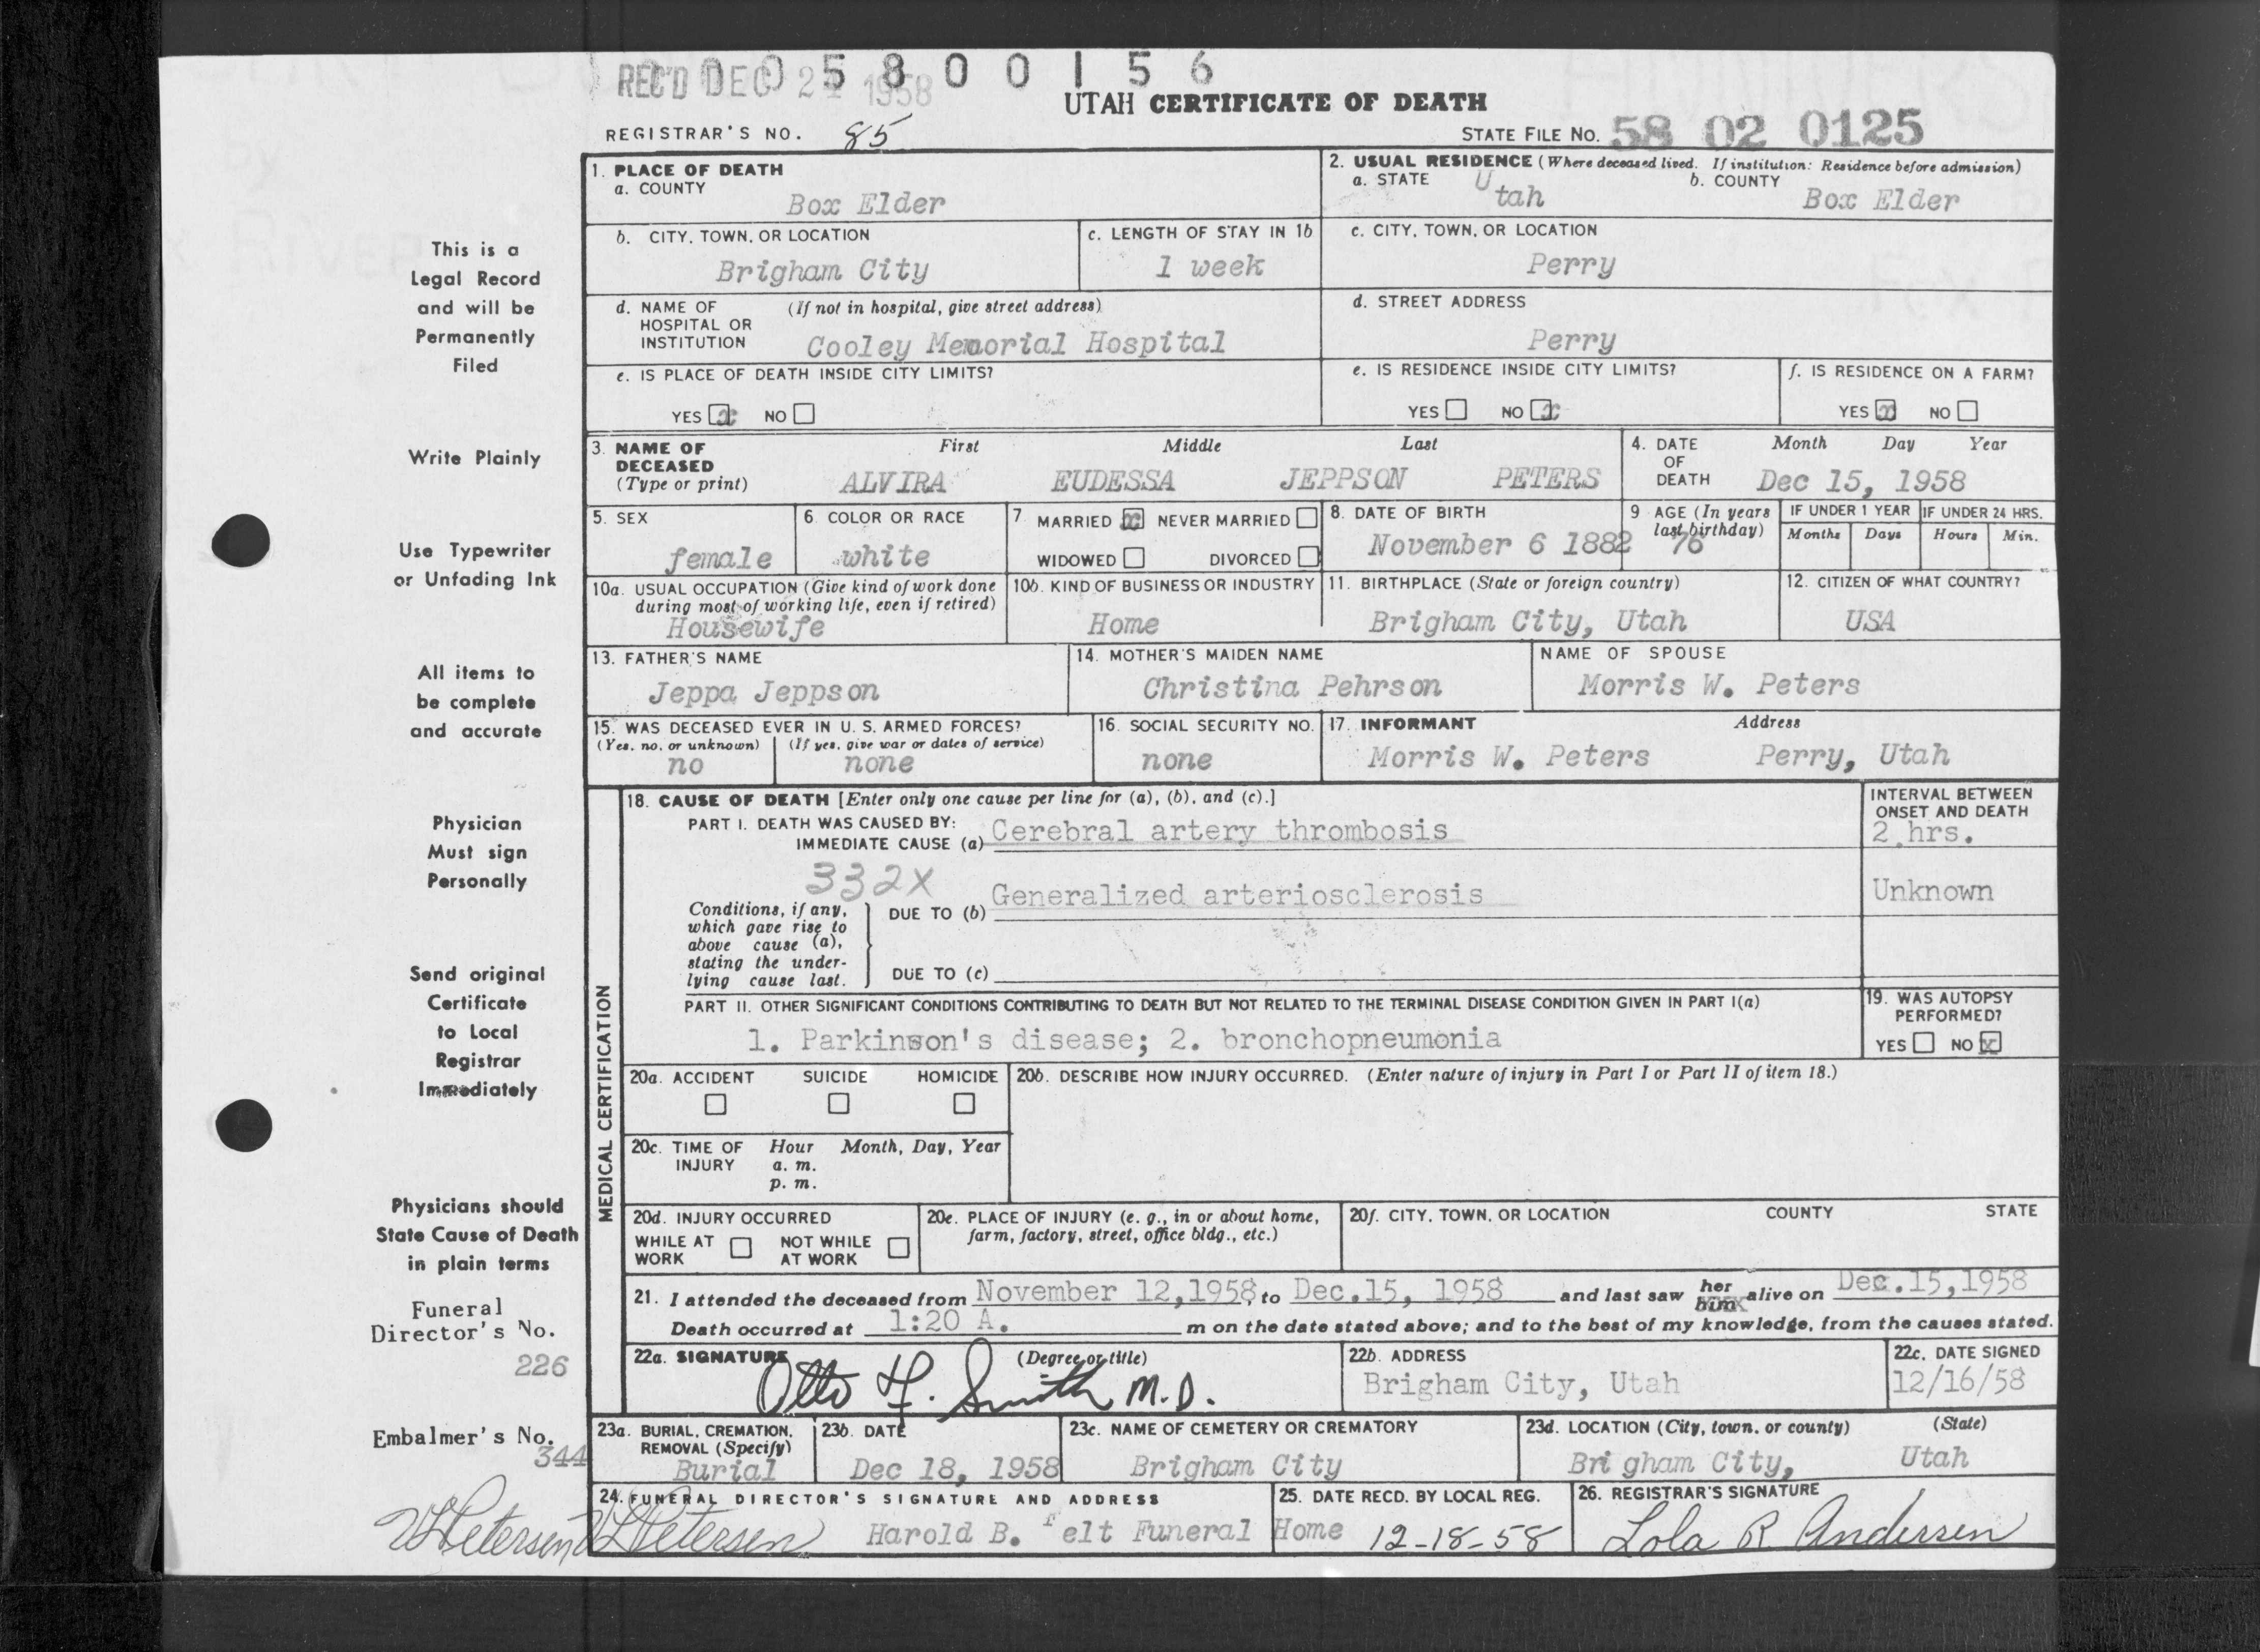 REC'D DEC 24 1958
0 0 5 8 0 0 1 5 6
UTAH CERTIFICATE OF DEATH
REGISTRAR'S NO. 85
STATE FILE NO. 58 02 0125
This is a
Legal Record
and will be
Permanently
Filed
Write Plainly
Use Typewriter
or Unfading Ink
All items to
be complete
and accurate
Physician
Must sign
Personally
Send original
Certificate
to Local
Registrar
Immediately
Physicians should
State Cause of Death
in plain terms
Funeral
Director's No.
226
Embalmer's No.
344
1. PLACE OF DEATH
a. COUNTY
Box Elder
2. USUAL RESIDENCE (Where deceased lived. If institution: Residence before admission)
a. STATE Utah b. COUNTY Box Elder
b. CITY, TOWN, OR LOCATION
Brigham City
c. LENGTH OF STAY IN 1b
1 week
c. CITY, TOWN, OR LOCATION
Perry
d. NAME OF (If not in hospital, give street address)
HOSPITAL OR
INSTITUTION Cooley Memorial Hospital
d. STREET ADDRESS
Perry
e. IS PLACE OF DEATH INSIDE CITY LIMITS?
YES x NO
e. IS RESIDENCE INSIDE CITY LIMITS?
YES NO x
f. IS RESIDENCE ON A FARM?
YES x NO
3. NAME OF DECEASED (Type or print)
First Middle Last
ALVIRA EUDESSA JEPPSON PETERS
4. DATE OF DEATH
Month Day Year
Dec 15, 1958
5. SEX
female
6. COLOR OR RACE
white
7 MARRIED x NEVER MARRIED
WIDOWED DIVORCED
8. DATE OF BIRTH
November 6 1882
9 AGE (In years last birthday)
76
IF UNDER 1 YEAR
Months Days
IF UNDER 24 HRS.
Hours Min.
10a. USUAL OCCUPATION (Give kind of work done
during most of working life, even if retired)
Housewife
10b. KIND OF BUSINESS OR INDUSTRY
Home
11. BIRTHPLACE (State or foreign country)
Brigham City, Utah
12. CITIZEN OF WHAT COUNTRY?
USA
13. FATHER'S NAME
Jeppa Jeppson
14. MOTHER'S MAIDEN NAME
Christina Pehrson
NAME OF SPOUSE
Morris W. Peters
15. WAS DECEASED EVER IN U. S. ARMED FORCES?
(Yes, no, or unknown) (If yes, give war or dates of service)
no none
16. SOCIAL SECURITY NO.
none
17. INFORMANT Address
Morris W. Peters Perry, Utah
MEDICAL CERTIFICATION
18. CAUSE OF DEATH [Enter only one cause per line for (a), (b), and (c).]
INTERVAL BETWEEN
ONSET AND DEATH
PART I. DEATH WAS CAUSED BY:
IMMEDIATE CAUSE (a) Cerebral artery thrombosis
2 hrs.
332X
Conditions, if any,
which gave rise to
above cause (a),
stating the under-
lying cause last.
DUE TO (b) Generalized arteriosclerosis
Unknown
DUE TO (c)
PART II. OTHER SIGNIFICANT CONDITIONS CONTRIBUTING TO DEATH BUT NOT RELATED TO THE TERMINAL DISEASE CONDITION GIVEN IN PART I(a)
1. Parkinson's disease; 2. bronchopneumonia
19. WAS AUTOPSY
PERFORMED?
YES NO x
20a. ACCIDENT SUICIDE HOMICIDE
20b. DESCRIBE HOW INJURY OCCURRED. (Enter nature of injury in Part I or Part II of item 18.)
20c. TIME OF INJURY
Hour Month, Day, Year
a. m.
p. m.
20d. INJURY OCCURRED
WHILE AT WORK NOT WHILE AT WORK
20e. PLACE OF INJURY (e. g., in or about home,
farm, factory, street, office bldg., etc.)
20f. CITY, TOWN, OR LOCATION COUNTY STATE
21. I attended the deceased from November 12,1958, to Dec.15, 1958 and last saw her him alive on Dec.15,1958
Death occurred at 1:20 A. m on the date stated above; and to the best of my knowledge, from the causes stated.
22a. SIGNATURE (Degree or title)
Otto F. Smith M.D.
22b. ADDRESS
Brigham City, Utah
22c. DATE SIGNED
12/16/58
23a. BURIAL, CREMATION,
REMOVAL (Specify)
Burial
23b. DATE
Dec 18, 1958
23c. NAME OF CEMETERY OR CREMATORY
Brigham City
23d. LOCATION (City, town, or county) (State)
Brigham City, Utah
24. FUNERAL DIRECTOR'S SIGNATURE AND ADDRESS
Petersen Petersen Harold B. Felt Funeral Home
25. DATE RECD. BY LOCAL REG.
12-18-58
26. REGISTRAR'S SIGNATURE
Lola R Andersen